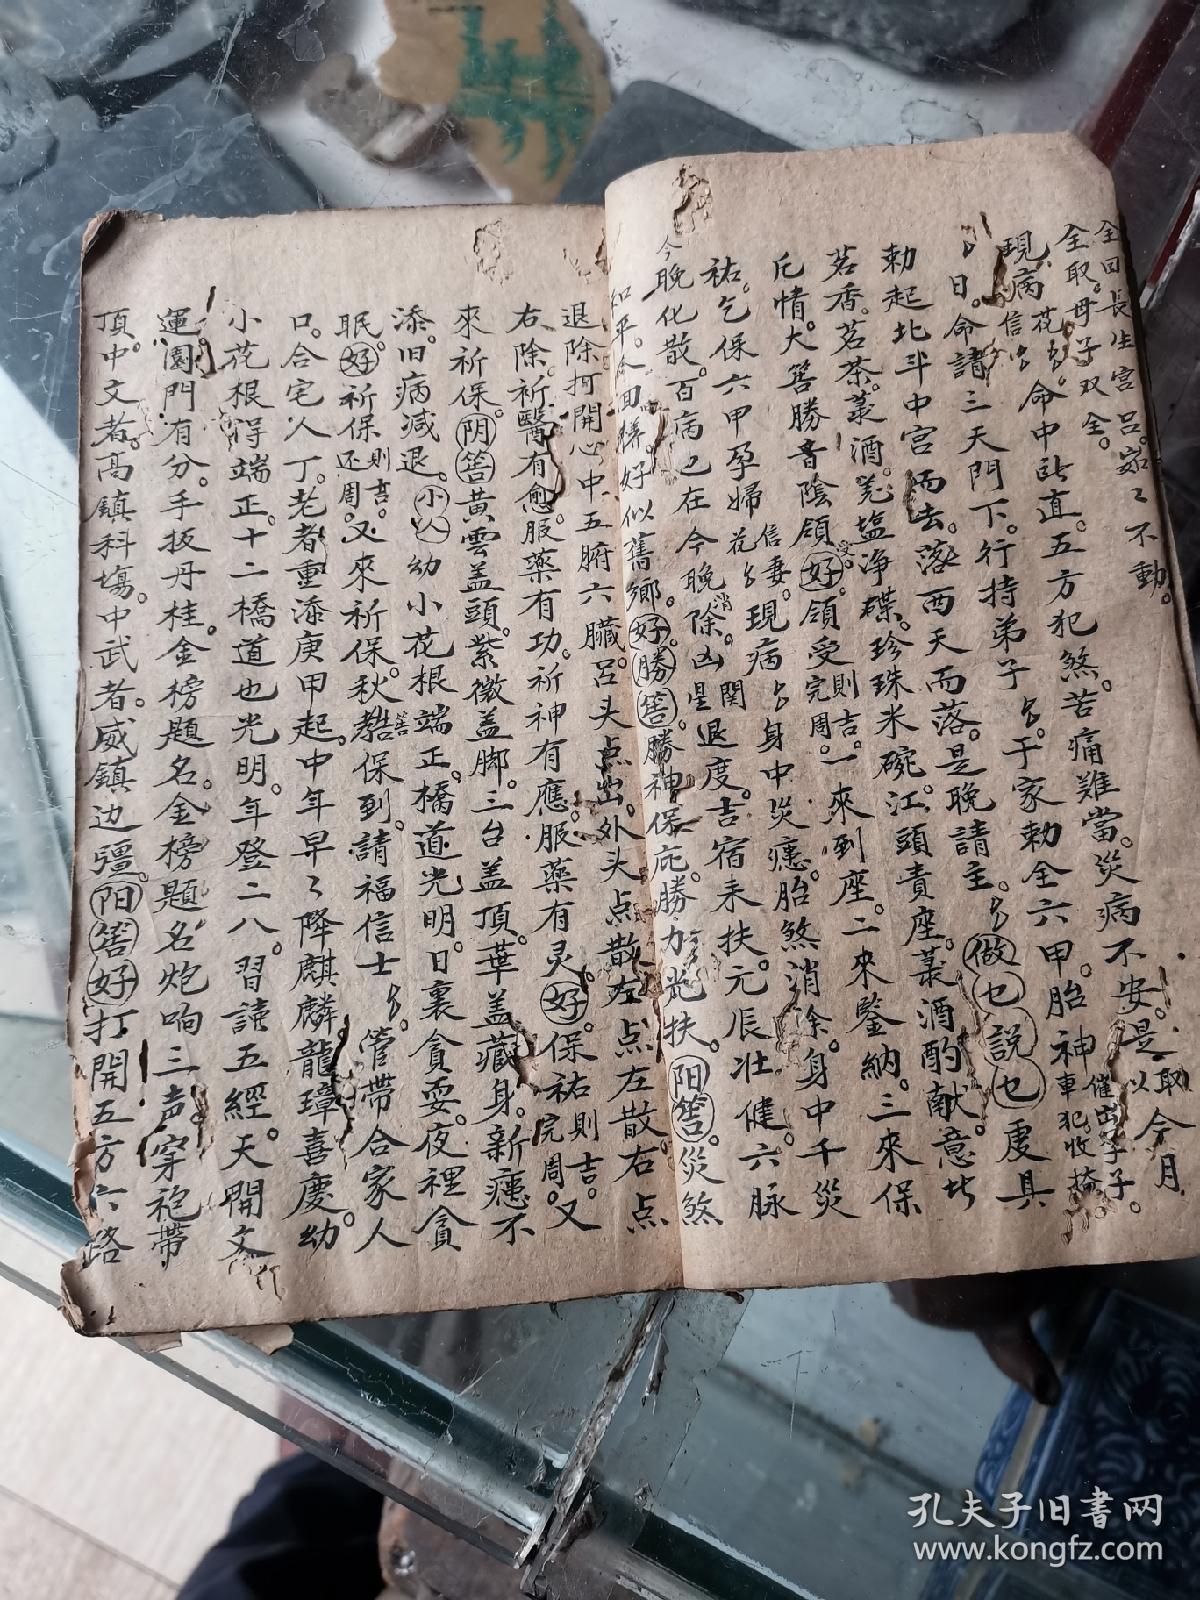 全回長生宮呂家〻不動。
全取。母子双全。
現病花 信 命中 直。五方犯煞苦痛難當。災病不安。是以取今月
日。命請三天門下。行持弟子 于家勅全六甲。胎神 車犯收 催出孕子。
勅起北斗中宮而去。落西天而落。是晚請主。做乜說乜虔具
茗香。茗茶。菉酒。 塩净碟。珍珠米碗。江頭責座。菉酒酌献。意
氏情。大筶勝音陰領好。領受則吉完周。一來到座。二來鑒納。三來保
祐。乞保六甲孕婦花 信妻 現病 身中災 。胎煞消除。身中千災
今晚化散。百病乜在今晚消除。凶星関退度。吉宿来扶。元辰壮健。六脉
和平。 回 。好似舊鄉。好勝筶。勝神保庇。勝力 扶。阳筶。災煞
退除。 開心中五腑六臟。呂头点出。外头点散。左点左散。右点
右除。祈醫有愈。服藥有功。祈神有應。服藥有灵。好。保祐則吉完周。又
來祈保。阴筶黃雲盖頭。紫微盖脚。三台盖頂。華盖藏身。新 不
添。旧病减退。小 幼小花根端正。橋道光明。日裏貪耍。夜裡貪
眠。好祈保則吉还周。又來祈保。秋 筶保到。請福信士 。管帶合家人
口。合宅人丁。老者重添庚甲起。中年早〻降麒麟龍璋喜慶。幼
小花根得端正。十二橋道也光明。年登二八。習讀五經。天開文
運。園門有分。手扳丹桂。金榜題名。金榜題名炮响三声。穿袍帶
頂。中文者。高鎮科塲。中武者。威鎮边彊。阳筶好打開五方六路
孔夫子旧书网
www.kongfz.com